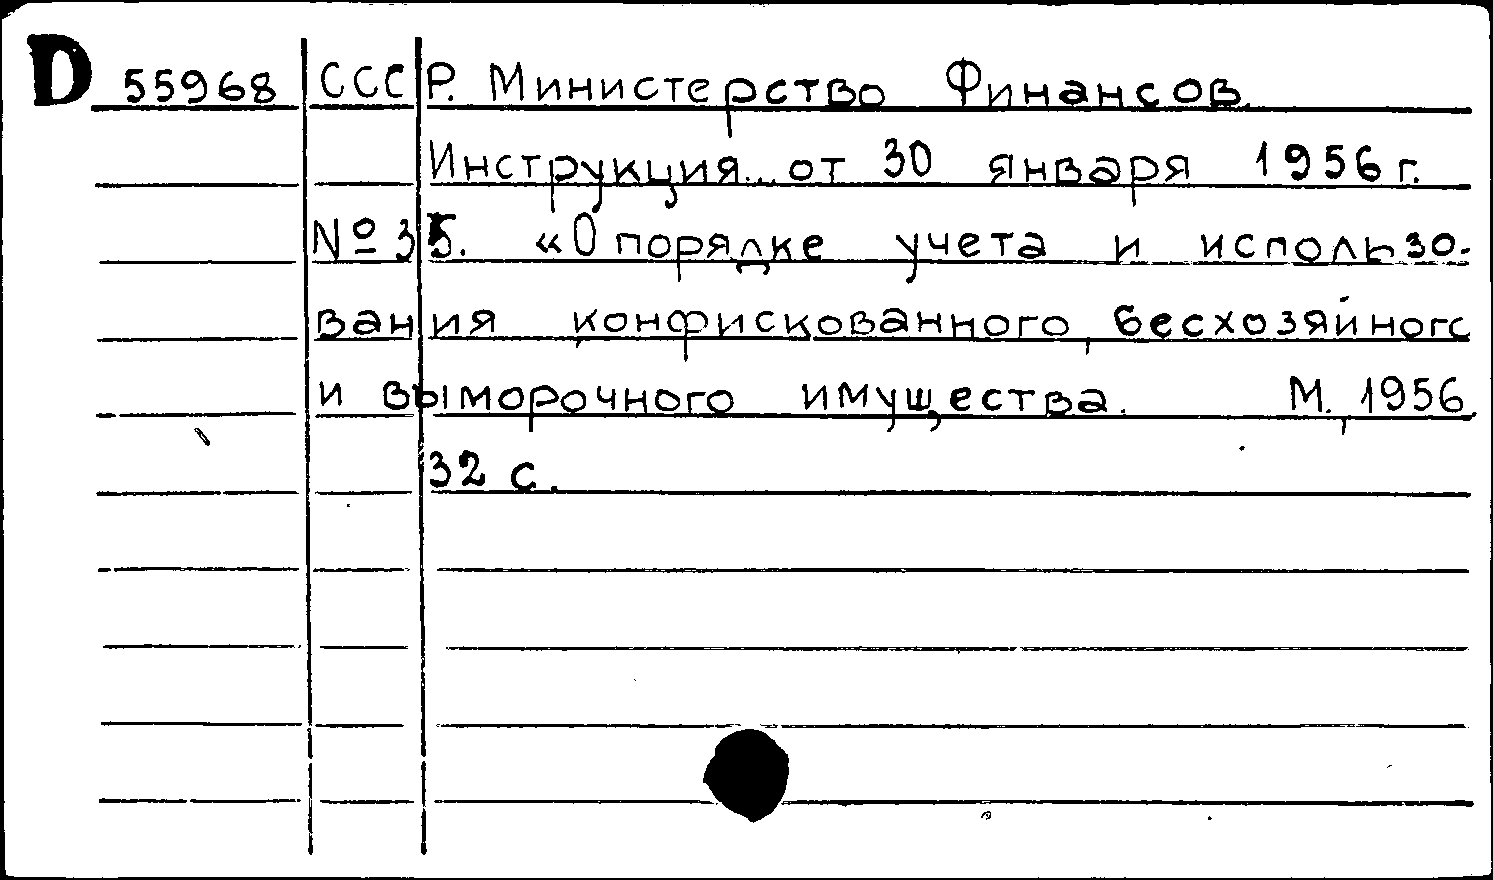 D 55968 СССР. Министерство Финансов.
Инструкция.. от 30 января 1956 г.
№ 35. «О порядке учета и использо-
вания конфискованного, бесхозяйного
и выморочного имущества. М., 1956.
32 с.